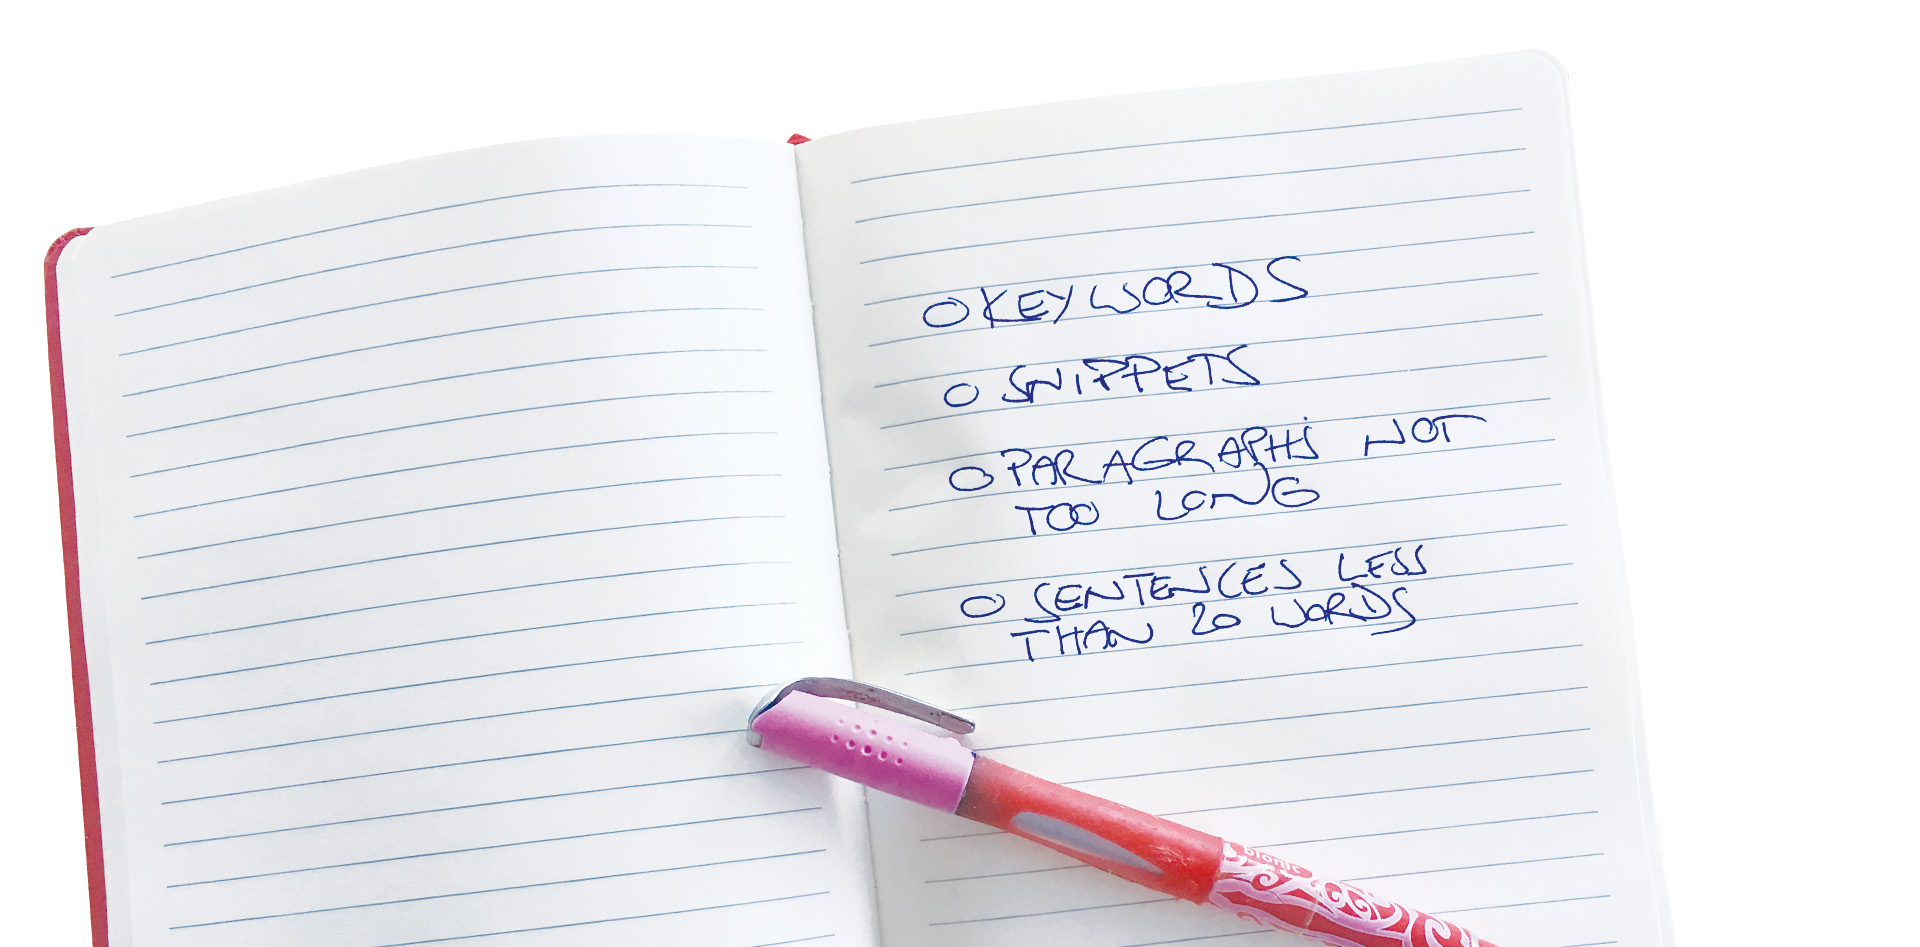 O KEYWORDS
O SNIPPETS
O PARAGRAPHS NOT
TOO LONG
O SENTENCES LESS
THAN 20 WORDS
bionic